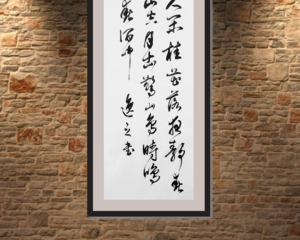 人闲桂花落夜静春
山空月出惊山鸟时鸣
春涧中
逸之书